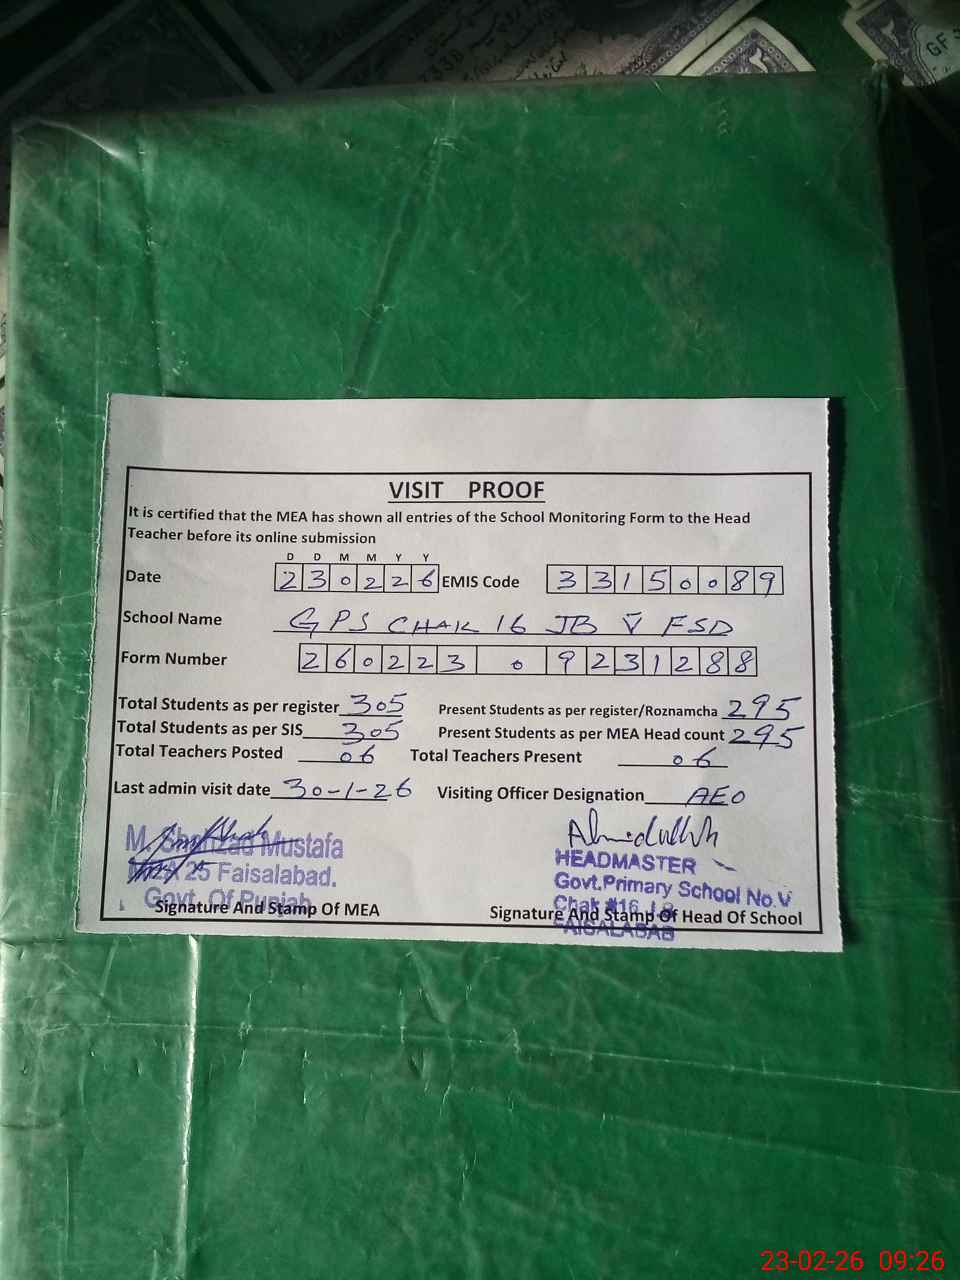 GF 3
VISIT PROOF
It is certified that the MEA has shown all entries of the School Monitoring Form to the Head
Teacher before its online submission
D D M M Y Y
Date 230226 EMIS Code 33150089
School Name GPS CHAK 16 JB V FSD
Form Number 260223 0 9231288
Total Students as per register 305 Present Students as per register/Roznamcha 295
Total Students as per SIS 305 Present Students as per MEA Head count 295
Total Teachers Posted 06 Total Teachers Present 06
Last admin visit date 30-1-26 Visiting Officer Designation AEO
M. Shahzad Mustafa
MEA 25 Faisalabad.
Govt. Of Punjab
Signature And Stamp Of MEA
HEADMASTER
Govt.Primary School No.V
Chak #16 J.B
FAISALABAD
Signature And Stamp Of Head Of School
23-02-26 09:26